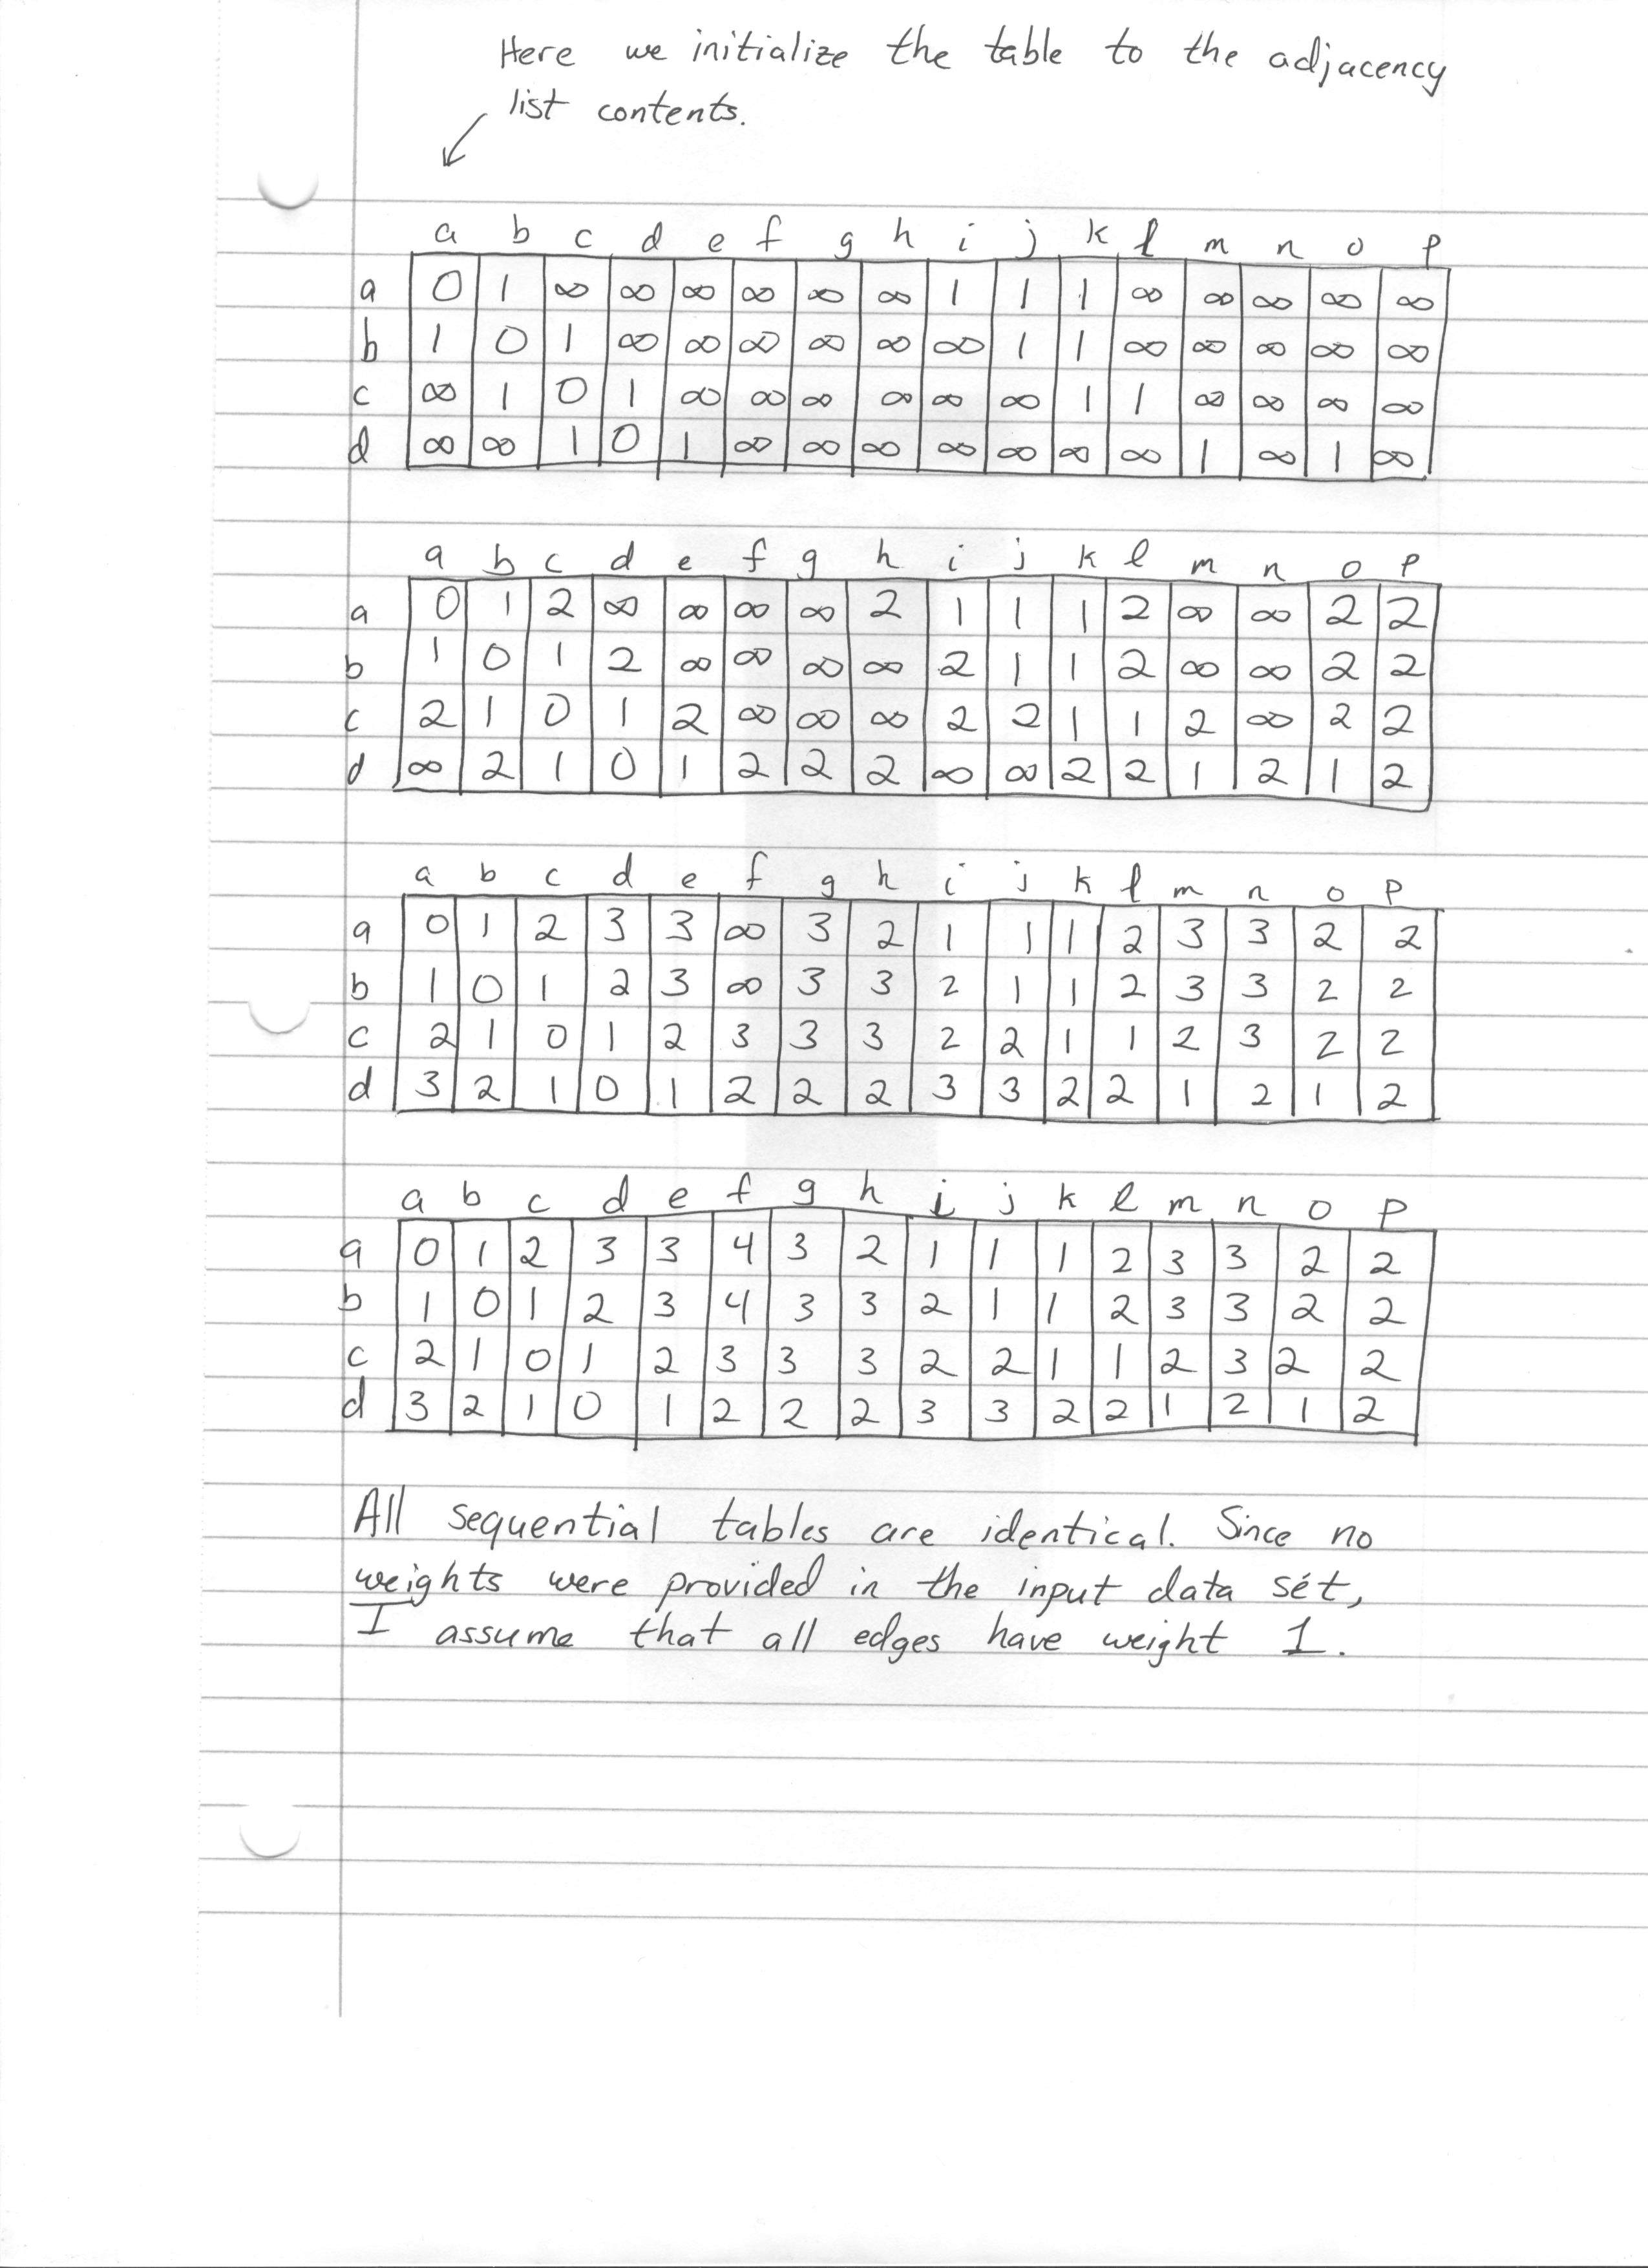 Here we initialize the table to the adjacency
list contents.
a b c d e f g h i j k l m n o p
a 0 1 ∞ ∞ ∞ ∞ ∞ ∞ 1 1 1 ∞ ∞ ∞ ∞ ∞
b 1 0 1 ∞ ∞ ∞ ∞ ∞ ∞ 1 1 ∞ ∞ ∞ ∞ ∞
c ∞ 1 0 1 ∞ ∞ ∞ ∞ ∞ ∞ 1 1 ∞ ∞ ∞ ∞
d ∞ ∞ 1 0 1 ∞ ∞ ∞ ∞ ∞ ∞ ∞ 1 ∞ 1 ∞
a b c d e f g h i j k l m n o p
a 0 1 2 ∞ ∞ ∞ ∞ 2 1 1 1 2 ∞ ∞ 2 2
b 1 0 1 2 ∞ ∞ ∞ ∞ 2 1 1 2 ∞ ∞ 2 2
c 2 1 0 1 2 ∞ ∞ ∞ 2 2 1 1 2 ∞ 2 2
d ∞ 2 1 0 1 2 2 2 ∞ ∞ 2 2 1 2 1 2
a b c d e f g h i j k l m n o p
a 0 1 2 3 3 ∞ 3 2 1 1 1 2 3 3 2 2
b 1 0 1 2 3 ∞ 3 3 2 1 1 2 3 3 2 2
c 2 1 0 1 2 3 3 3 2 2 1 1 2 3 2 2
d 3 2 1 0 1 2 2 2 3 3 2 2 1 2 1 2
a b c d e f g h i j k l m n o p
a 0 1 2 3 3 4 3 2 1 1 1 2 3 3 2 2
b 1 0 1 2 3 4 3 3 2 1 1 2 3 3 2 2
c 2 1 0 1 2 3 3 3 2 2 1 1 2 3 2 2
d 3 2 1 0 1 2 2 2 3 3 2 2 1 2 1 2
All sequential tables are identical. Since no
weights were provided in the input data set,
I assume that all edges have weight 1.